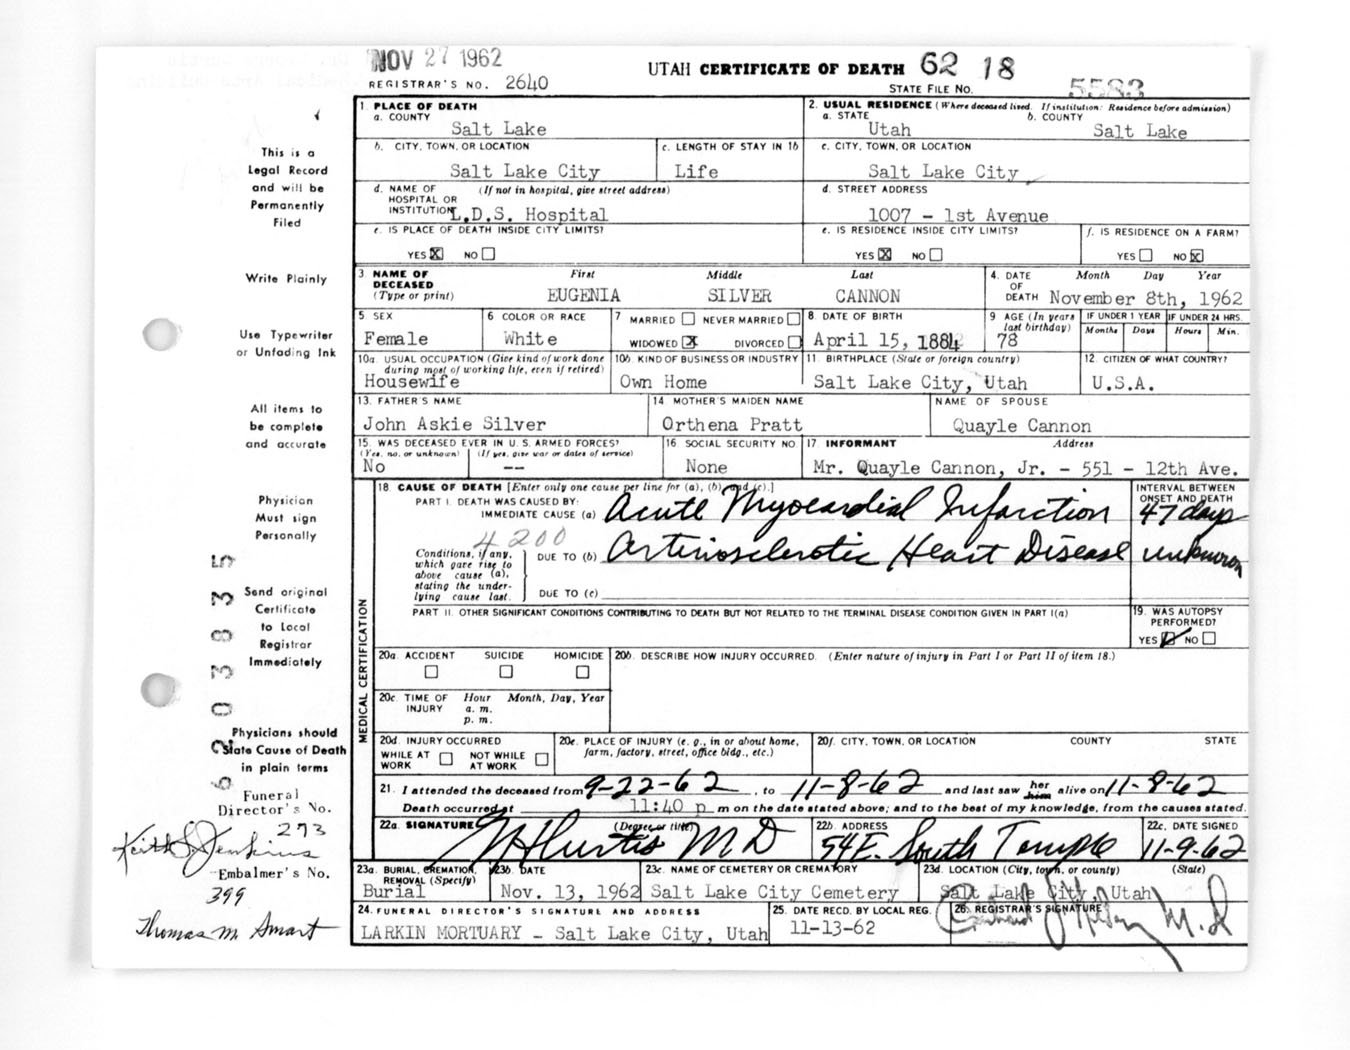 NOV 27 1962
REGISTRAR'S NO. 2640
UTAH CERTIFICATE OF DEATH 62 18
STATE FILE NO. 5583
This is a
Legal Record
and will be
Permanently
Filed
Write Plainly
Use Typewriter
or Unfading Ink
All items to
be complete
and accurate
Physician
Must sign
Personally
Send original
Certificate
to Local
Registrar
Immediately
Physicians should
State Cause of Death
in plain terms
Funeral
Director's No.
273
Keith S. Jenkins
Embalmer's No.
399
Thomas M Smart
1. PLACE OF DEATH
a. COUNTY
Salt Lake
2. USUAL RESIDENCE (Where deceased lived. If institution: Residence before admission)
a. STATE b. COUNTY
Utah Salt Lake
b. CITY, TOWN, OR LOCATION
Salt Lake City
c. LENGTH OF STAY IN 1b
Life
c. CITY, TOWN, OR LOCATION
Salt Lake City
d. NAME OF (If not in hospital, give street address)
HOSPITAL OR
INSTITUTION L.D.S. Hospital
d. STREET ADDRESS
1007 - 1st Avenue
e. IS PLACE OF DEATH INSIDE CITY LIMITS?
YES X NO
e. IS RESIDENCE INSIDE CITY LIMITS?
YES X NO
f. IS RESIDENCE ON A FARM?
YES NO X
3. NAME OF First Middle Last
DECEASED
(Type or print) EUGENIA SILVER CANNON
4. DATE Month Day Year
OF
DEATH November 8th, 1962
5 SEX
Female
6 COLOR OR RACE
White
7 MARRIED NEVER MARRIED
WIDOWED X DIVORCED
8 DATE OF BIRTH
April 15, 1884
9 AGE (In years
last birthday)
78
IF UNDER 1 YEAR
Months Days
IF UNDER 24 HRS.
Hours Min.
10a. USUAL OCCUPATION (Give kind of work done
during most of working life, even if retired)
Housewife
10b. KIND OF BUSINESS OR INDUSTRY
Own Home
11. BIRTHPLACE (State or foreign country)
Salt Lake City, Utah
12. CITIZEN OF WHAT COUNTRY?
U.S.A.
13. FATHER'S NAME
John Askie Silver
14 MOTHER'S MAIDEN NAME
Orthena Pratt
NAME OF SPOUSE
Quayle Cannon
15. WAS DECEASED EVER IN U. S. ARMED FORCES?
(Yes, no, or unknown) (If yes, give war or dates of service)
No --
16 SOCIAL SECURITY NO.
None
17. INFORMANT Address
Mr. Quayle Cannon, Jr. - 551 - 12th Ave.
MEDICAL CERTIFICATION
18. CAUSE OF DEATH [Enter only one cause per line for (a), (b), and (c).]
INTERVAL BETWEEN
ONSET AND DEATH
PART I. DEATH WAS CAUSED BY:
IMMEDIATE CAUSE (a) Acute Myocardial Infarction 47 days
4200
Conditions, if any,
which gave rise to
above cause (a),
stating the under-
lying cause last.
DUE TO (b) Arteriosclerotic Heart Disease unknown
DUE TO (c)
PART II. OTHER SIGNIFICANT CONDITIONS CONTRIBUTING TO DEATH BUT NOT RELATED TO THE TERMINAL DISEASE CONDITION GIVEN IN PART I(a)
19. WAS AUTOPSY
PERFORMED?
YES ✓ NO
20a. ACCIDENT SUICIDE HOMICIDE
20b. DESCRIBE HOW INJURY OCCURRED. (Enter nature of injury in Part I or Part II of item 18.)
20c. TIME OF Hour Month, Day, Year
INJURY a. m.
p. m.
20d. INJURY OCCURRED
WHILE AT WORK NOT WHILE AT WORK
20e. PLACE OF INJURY (e. g., in or about home,
farm, factory, street, office bldg., etc.)
20f. CITY, TOWN, OR LOCATION COUNTY STATE
21. I attended the deceased from 9-22-62, to 11-8-62 and last saw her him alive on 11-8-62
Death occurred at 11:40 p m on the date stated above; and to the best of my knowledge, from the causes stated.
22a. SIGNATURE (Degree or title)
Curtis M D
22b. ADDRESS
54 E. South Temple
22c. DATE SIGNED
11-9-62
23a. BURIAL, CREMATION,
REMOVAL (Specify)
Burial
23b. DATE
Nov. 13, 1962
23c. NAME OF CEMETERY OR CREMATORY
Salt Lake City Cemetery
23d. LOCATION (City, town, or county) (State)
Salt Lake City, Utah
24. FUNERAL DIRECTOR'S SIGNATURE AND ADDRESS
LARKIN MORTUARY - Salt Lake City, Utah
25. DATE RECD. BY LOCAL REG.
11-13-62
26. REGISTRAR'S SIGNATURE
M.D